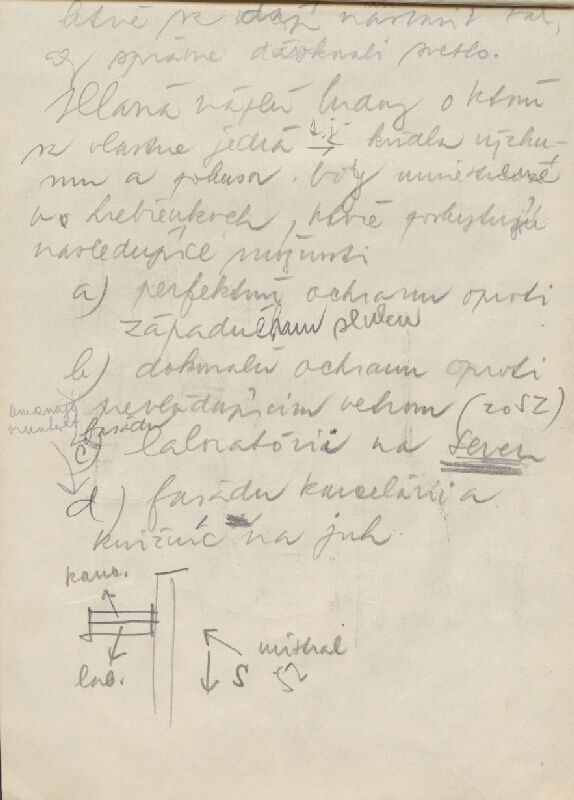 ktoré sa dajú nastaviť tak,
aby správne dávkovali svetlo.
Hlavná náplň budovy o ktorú
sa vlastne jedná t.j. krídla výzku-
mu a pokusov. boly umiestnené
v hrebienkoch, ktoré poskytujú
nasledujúce možnosti
a) perfektnú ochranu oproti
západnému slncu
b) dokonalú ochranu oproti
prevládajúcim vetrom (zo SZ)
umožňujú orientovať
fasádu
c) laboratórií na Sever
d) fasádu kancelárií a
knižníc na juh
kanc.
lab.
mistral
S
SZ